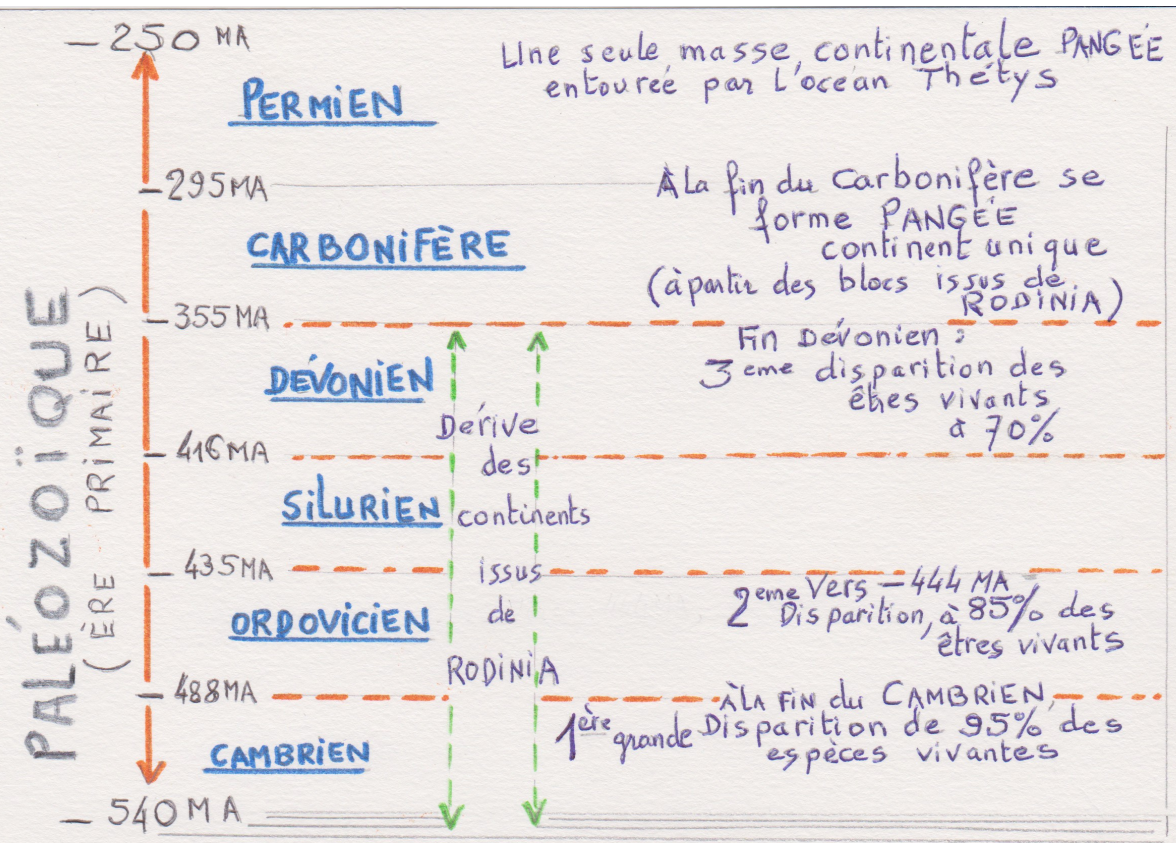 PALÉOZOÏQUE
(ÈRE PRIMAIRE)
– 250 MA
Une seule masse continentale PANGÉE
entourée par l'océan Thétys
PERMIEN
– 295 MA
À La fin du Carbonifère se
forme PANGÉE
continent unique
(à partir des blocs issus de
RODINIA)
CARBONIFÈRE
– 355 MA
Fin Dévonien :
3eme disparition des
êtres vivants
à 70%
DÉVONIEN
– 416 MA
SILURIEN
– 435 MA
Dérive
des
continents
issus
de
RODINIA
ORDOVICIEN
2eme Vers – 444 MA
Disparition, à 85% des
êtres vivants
– 488 MA
À LA FIN du CAMBRIEN,
1ère grande Disparition de 95% des
espèces vivantes
CAMBRIEN
– 540 MA